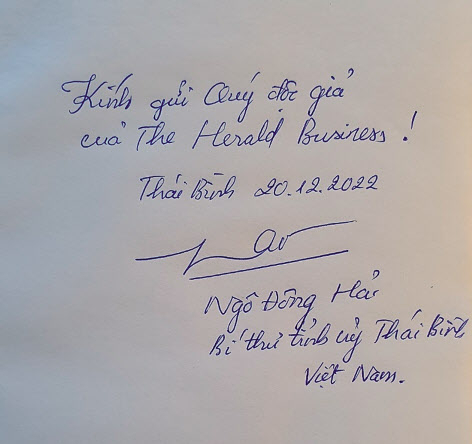 Kính gửi Quý độc giả
của The Herald Business!
Thái Bình 20.12.2022
Ngô Đông Hải
Bí thư tỉnh ủy Thái Bình
Việt Nam.